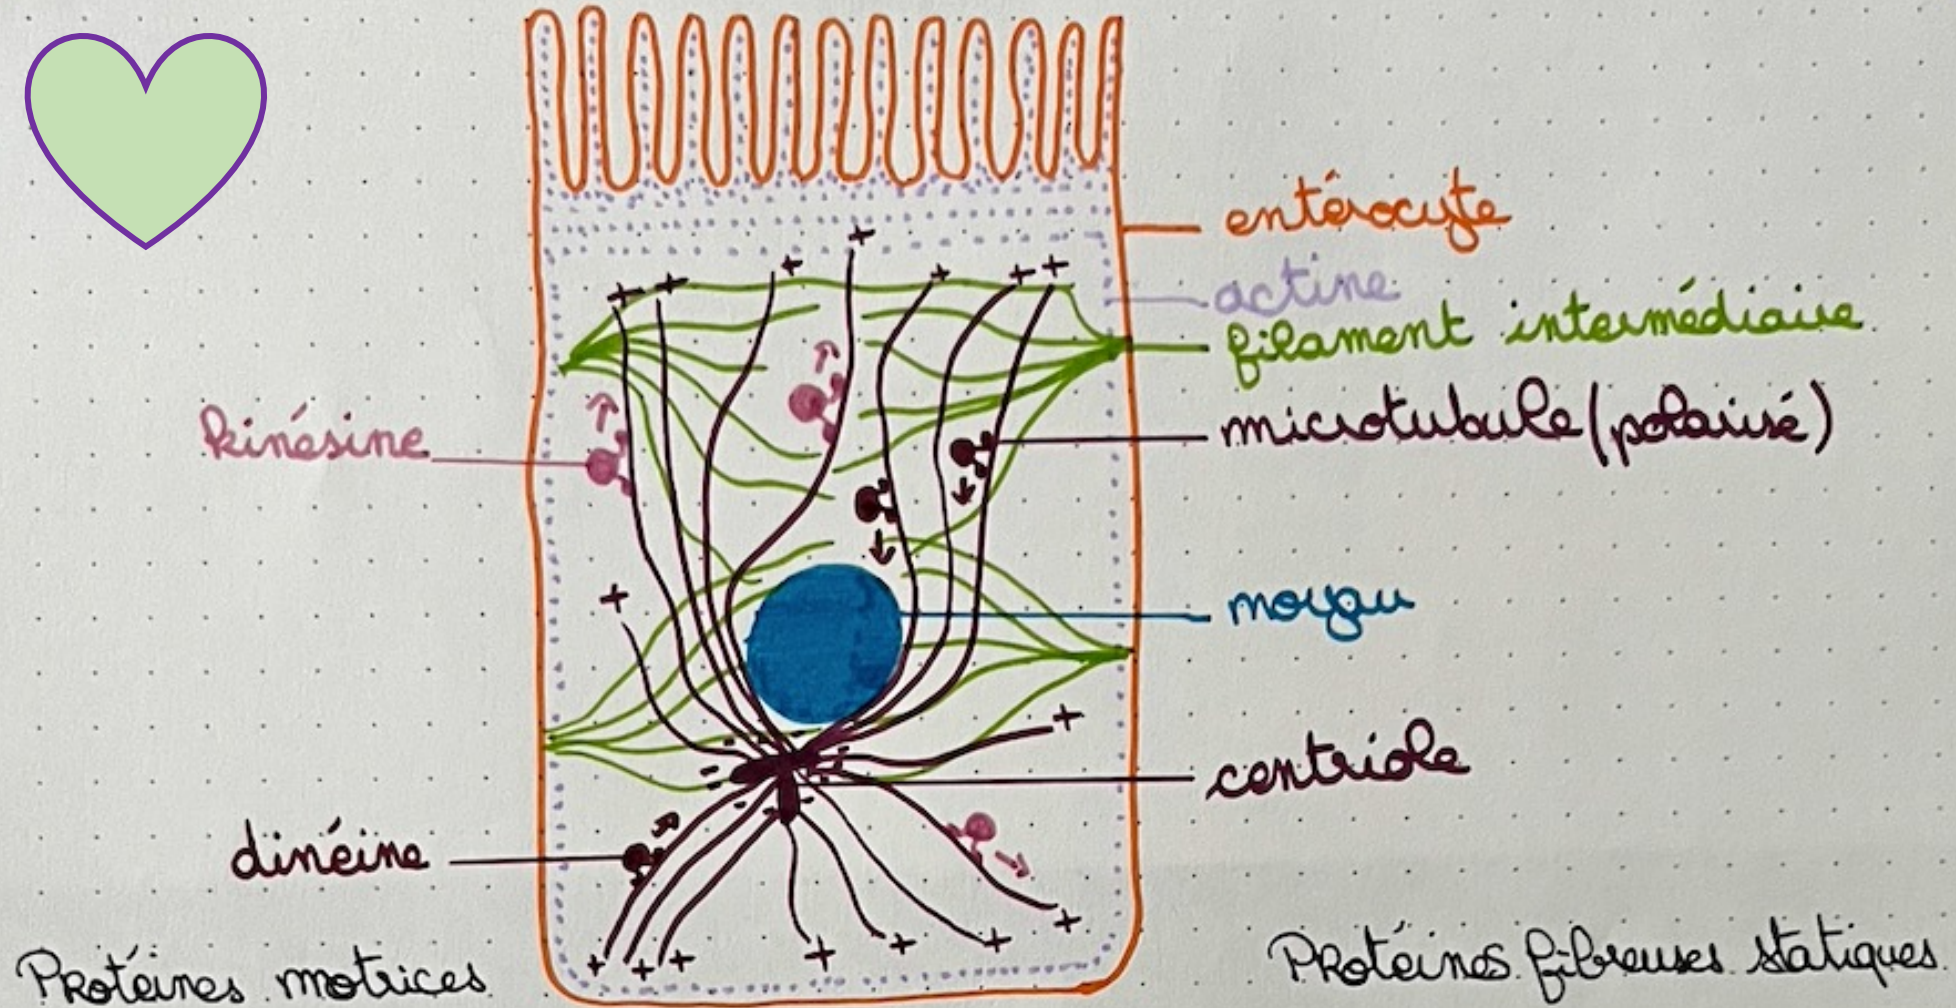 entérocyte
actine
filament intermédiaire
kinésine
microtubule (polarisé)
noyau
centriole
dinéine
Protéines motrices
Protéines fibreuses statiques